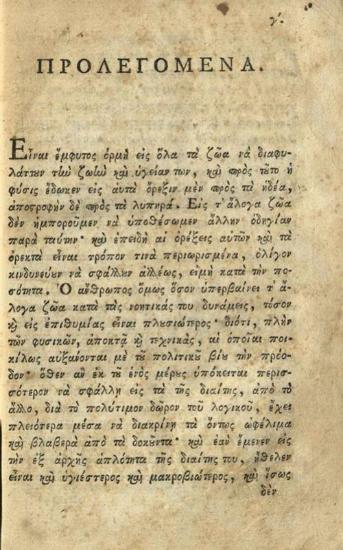 γ'.
ΠΡΟΛΕΓΟΜΕΝΑ.
Εἶναι ἔμφυτος ὁρμὴ εἰς ὅλα τὰ ζῶα νὰ διαφυ-
λάττουν τὴν ζωὴν καὶ ὑγείαν των, καὶ πρὸς τοῦτο ἡ
φύσις ἔδωκεν εἰς αὐτὰ ὄρεξιν μὲν πρὸς τὰ ἡδέα,
ἀποστροφὴν δὲ πρὸς τὰ λυπηρά. Εἰς τ' ἄλογα ζῶα
δὲν ἠμποροῦμεν νὰ ὑποθέσωμεν ἄλλην ὁδηγίαν
παρὰ ταύτην· καὶ ἐπειδὴ αἱ ὀρέξεις αὐτῶν καὶ τὰ
ὀρεκτὰ εἶναι τρόπον τινὰ περιωρισμένα, ὀλίγον
κινδυνεύουν νὰ σφάλλουν ἄλλως, εἰμὴ κατὰ τὴν πο-
σότητα. Ὁ ἄνθρωπος ὅμως ὅσον ὑπερβαίνει τ' ἄ-
λογα ζῶα κατὰ τὰς νοητικάς του δυνάμεις, τόσον
καὶ εἰς ἐπιθυμίας εἶναι πλουσιώτερος· διότι, πλὴν
τῶν φυσικῶν, ἀποκτᾷ καὶ τεχνικάς, αἱ ὁποῖαι ποι-
κίλως αὐξάνονται μὲ τοῦ πολιτικοῦ βίου τὴν πρόο-
δον· ὅθεν ἂν ἐκ τοῦ ἑνὸς μέρους ὑπόκειται περισ-
σότερον νὰ σφάλλῃ εἰς τὰ τῆς διαίτης, ἀπὸ τὸ
ἄλλο, διὰ τὸ πολύτιμον δῶρον τοῦ λογικοῦ, ἔχει
πλειότερα μέσα νὰ διακρίνῃ τὰ ὄντως ὠφέλιμα
καὶ βλαβερὰ ἀπὸ τὰ δοκοῦντα· καὶ ἐὰν ἔμενεν εἰς
τὴν ἐξ ἀρχῆς ἁπλότητα τῆς διαίτης του, ἤθελεν
εἶναι καὶ ὑγιέστερος καὶ μακροβιώτερος, καὶ ἴσως
δὲν